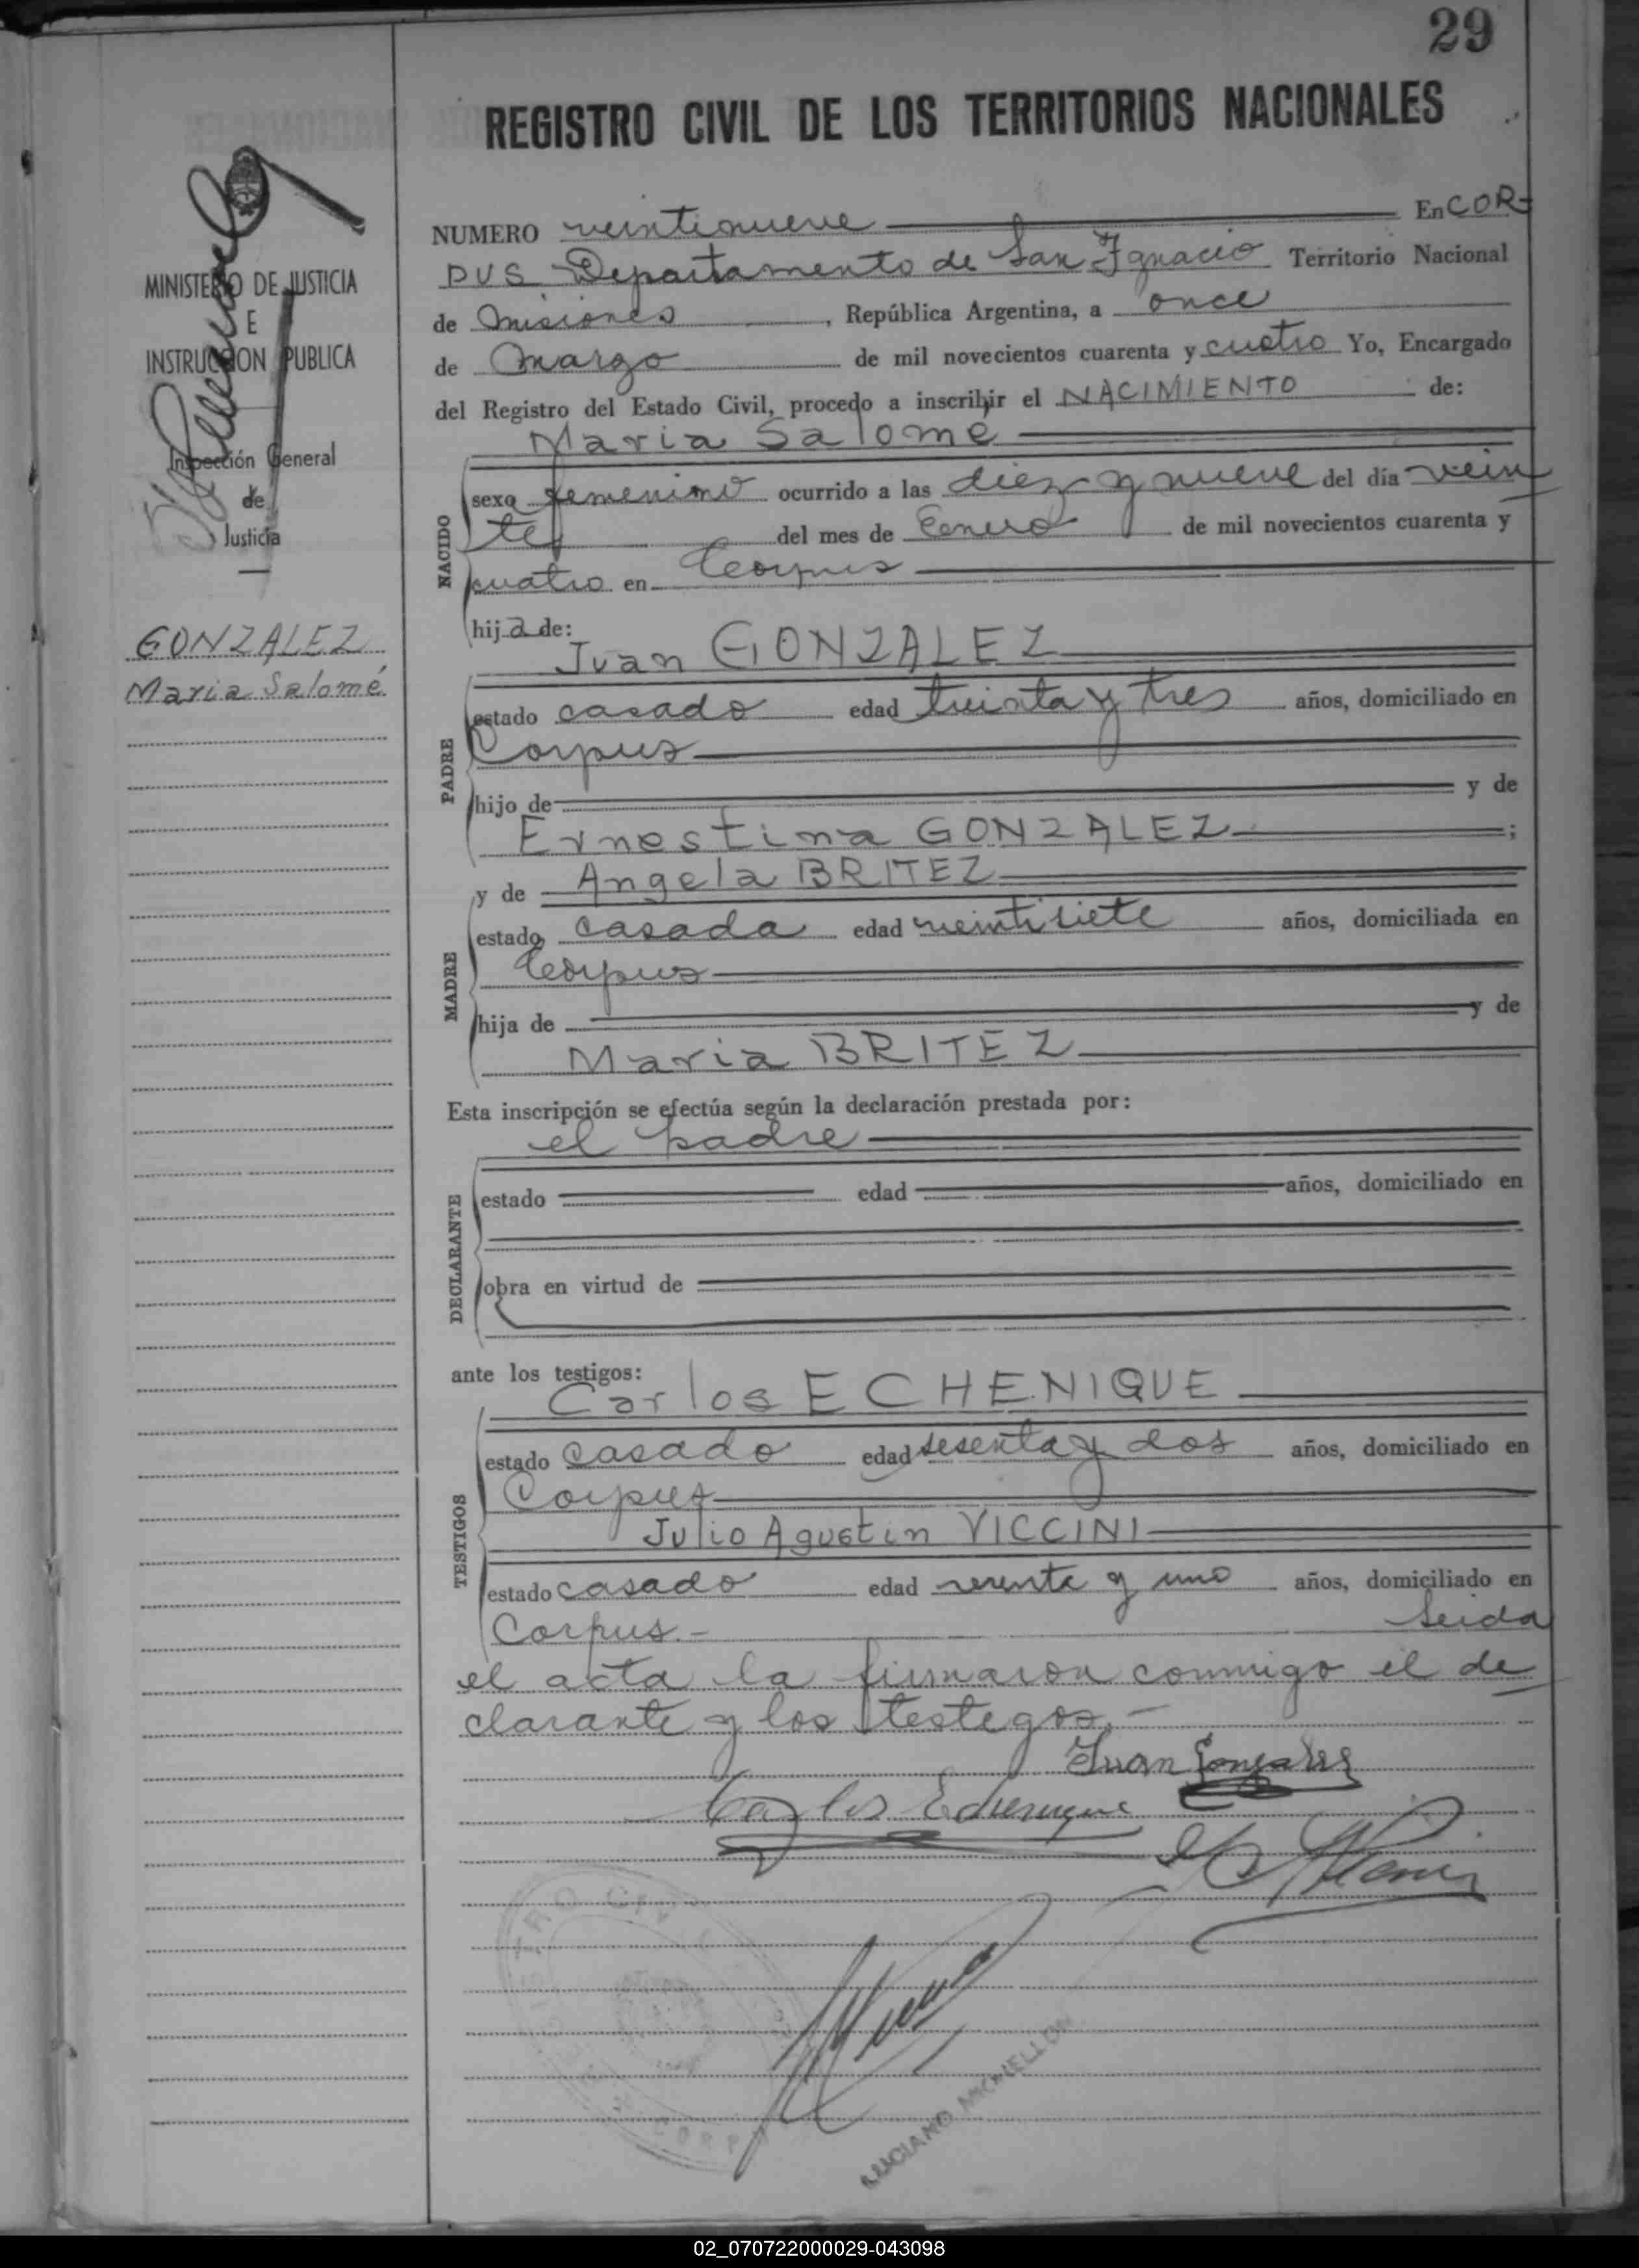 29
REGISTRO CIVIL DE LOS TERRITORIOS NACIONALES
MINISTERIO DE JUSTICIA
E
INSTRUCCION PUBLICA
Inspección General
de
Justicia
GONZALEZ
Maria Salomé
NUMERO veintinueve En COR-
PUS Departamento de San Ignacio Territorio Nacional
de Misiones, República Argentina, a once
de Marzo de mil novecientos cuarenta y cuatro Yo, Encargado
del Registro del Estado Civil, procedo a inscribir el NACIMIENTO de:
Maria Salomé
NACIDO
sexo femenino ocurrido a las diez y nueve del día vein
te del mes de Enero de mil novecientos cuarenta y
cuatro en Corpus
hija de:
Juan GONZALEZ
PADRE
estado casado edad treinta y tres años, domiciliado en
Corpus
hijo de y de
Ernestina GONZALEZ ;
y de Angela BRITEZ
MADRE
estado casada edad veintisiete años, domiciliada en
Corpus
hija de y de
Maria BRITEZ
Esta inscripción se efectúa según la declaración prestada por:
el padre
DECLARANTE
estado edad años, domiciliado en
obra en virtud de
ante los testigos:
Carlos ECHENIQUE
TESTIGOS
estado casado edad sesenta y dos años, domiciliado en
Corpus
Julio Agustin VICCINI
estado casado edad y uno años, domiciliado en
Corpus.- Leida
el acta la firmaron conmigo el de
clarante y los testegos.-
Juan Gonzalez
Carlos Echenique
CORPUS
LUCIANO MICHELLON
02_070722000029-043098